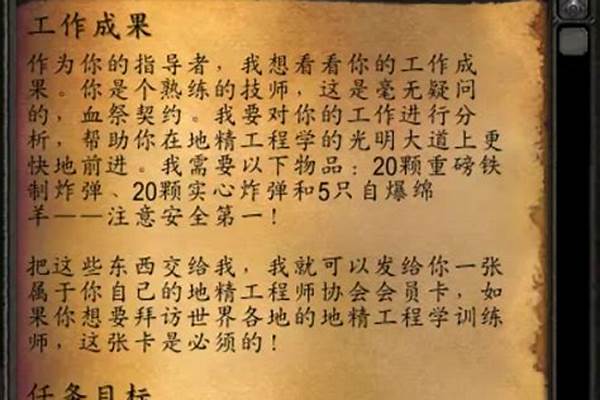 工作成果
作为你的指导者，我想看看你的工作成
果。你是个熟练的技师，这是毫无疑问
的，血祭契约。我要对你的工作进行分
析，帮助你在地精工程学的光明大道上更
快地前进。我需要以下物品：20颗重磅铁
制炸弹、20颗实心炸弹和5只自爆绵
羊——注意安全第一！
把这些东西交给我，我就可以发给你一张
属于你自己的地精工程师协会会员卡，如
果你想要拜访世界各地的地精工程学训练
师，这张卡是必须的！
任务目标